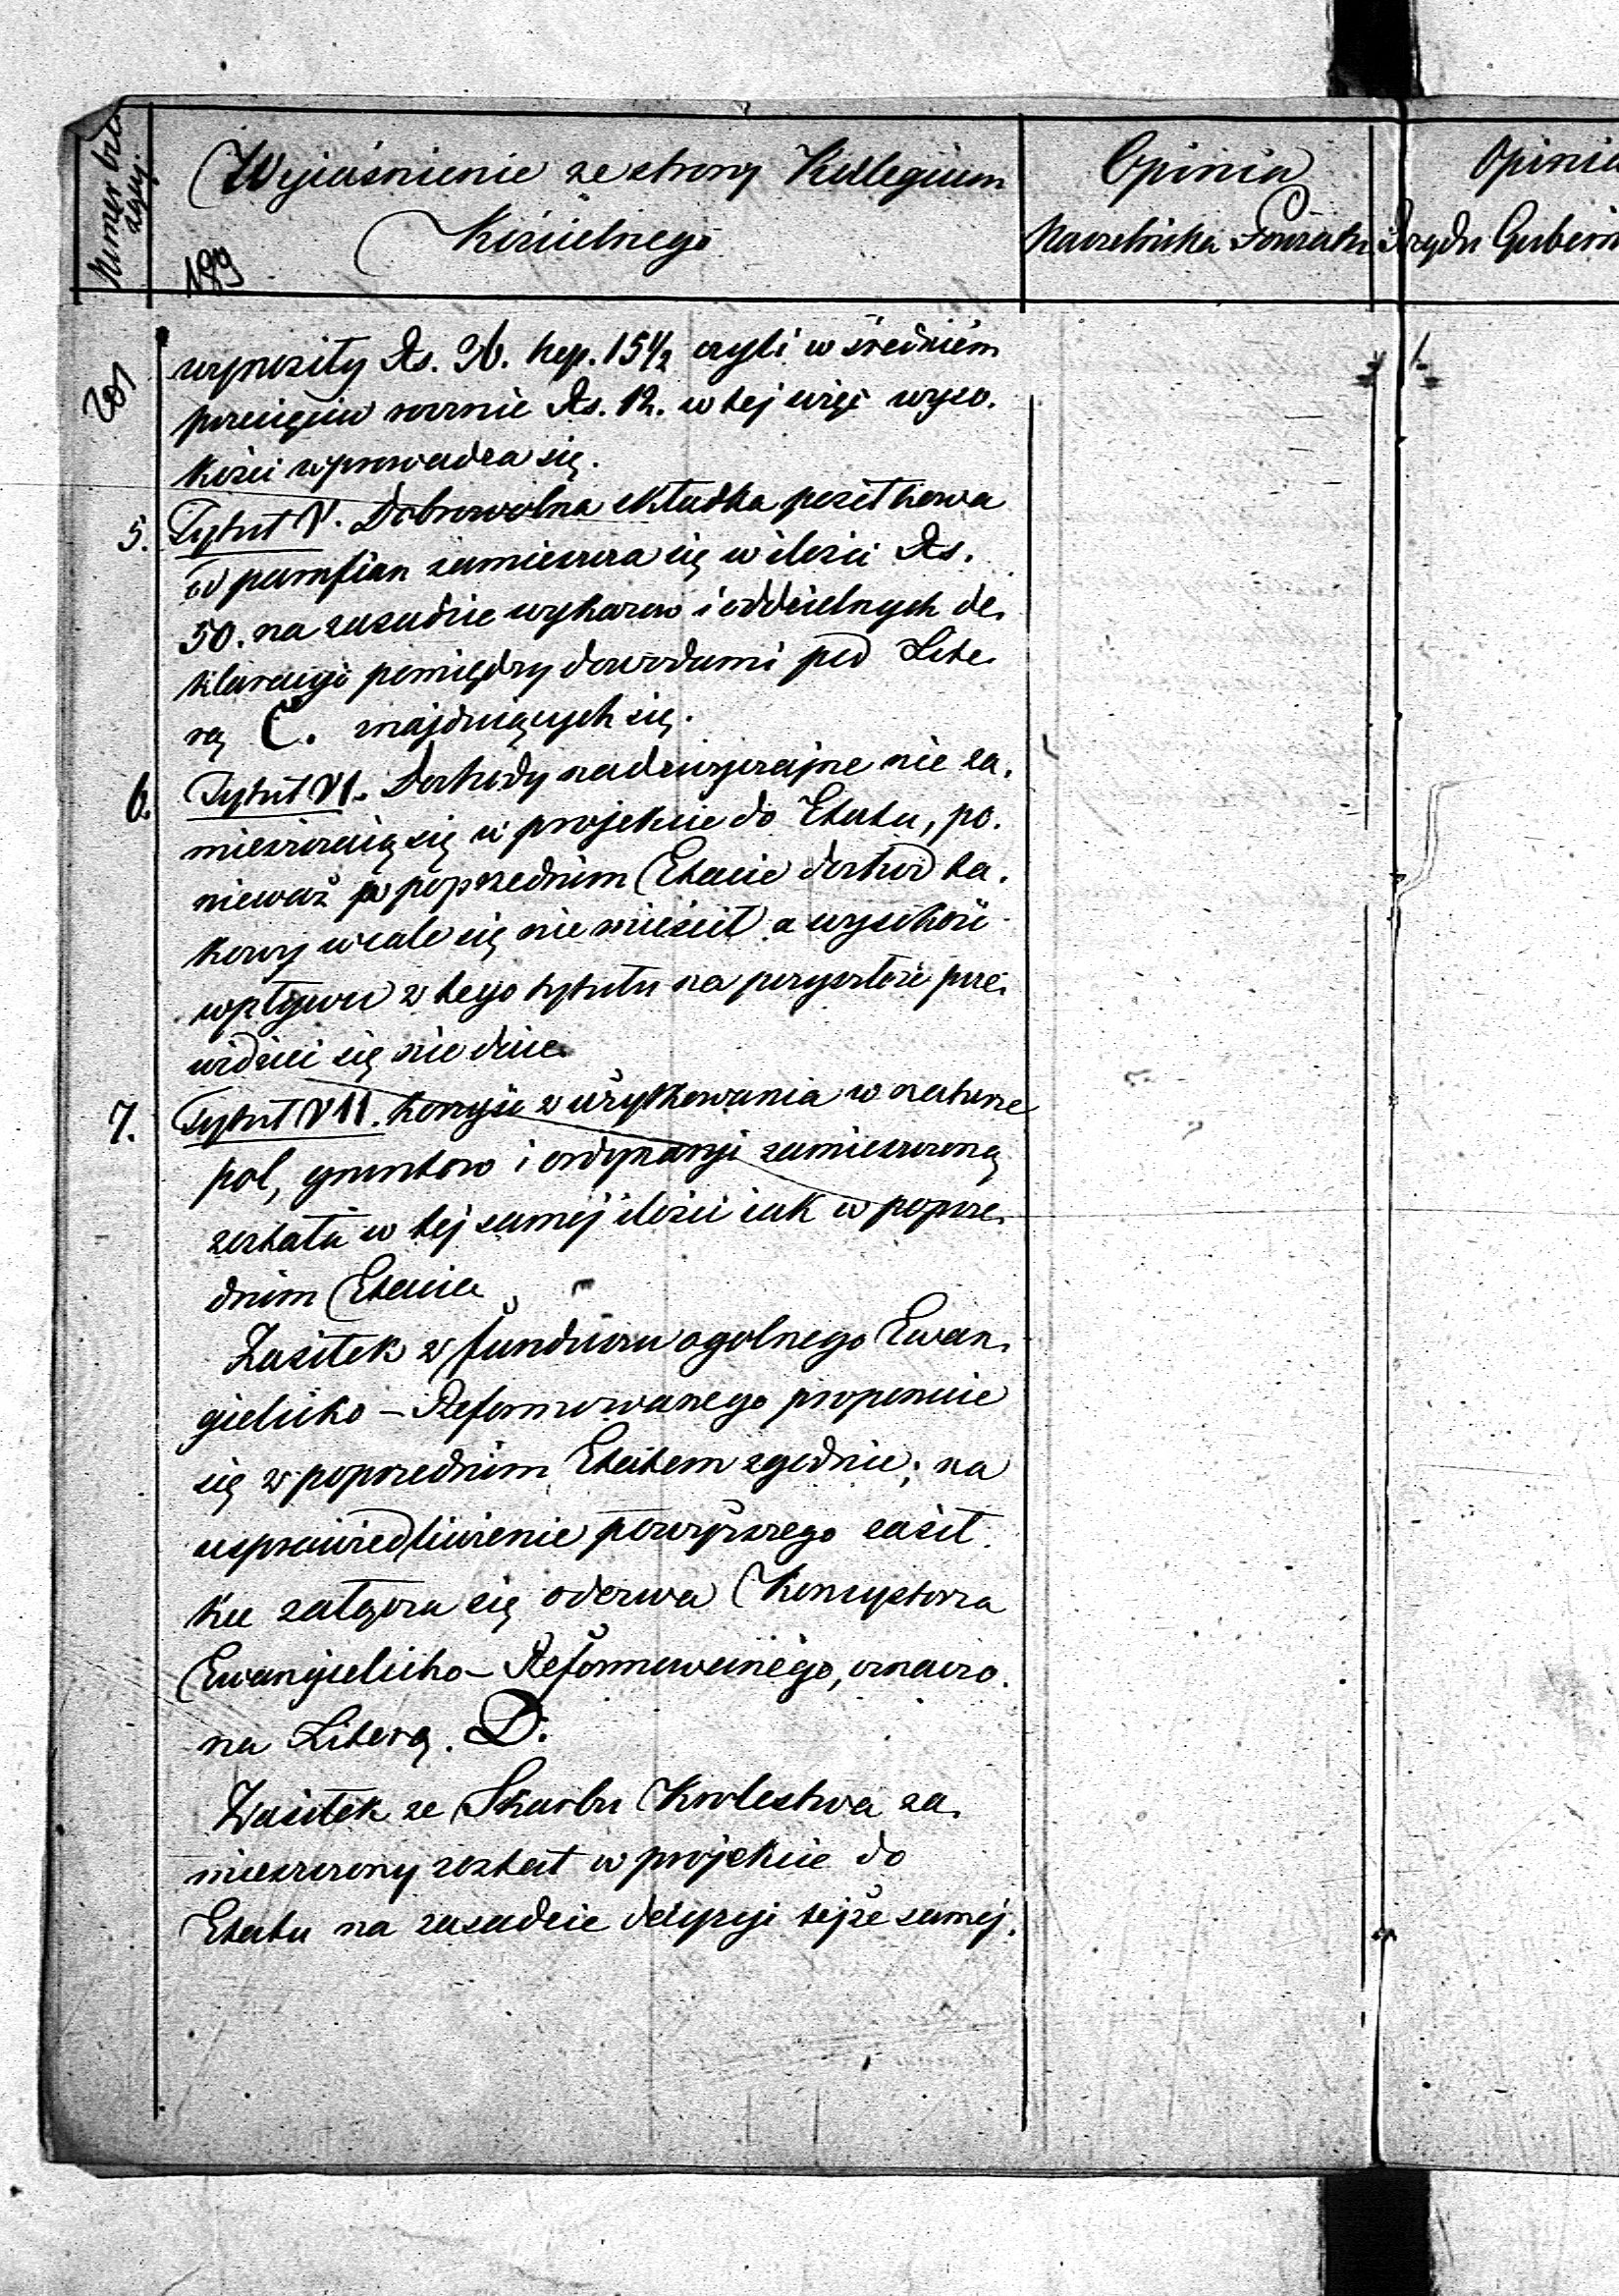 Numer bie
żący.
Wyjaśnienie ze strony Kollegium
Kościelnego
Opinia
Naczelnika Powiatu
Opinia
Rządu Gubern
199
201
wynosiły Rs. 36. kop. 15 1/2 czyli w średniém
przecięciu rocznie Rs. 12. w tej więc wyso.
kości wprowadza się.
5. Tytuł V. Dobrowolna składka
od parafian zamieszcza się w ilości Rs.
50. na zasadzie wykazów i oddzielnych de.
klaracyi pomiędzy dowodami pod Lite.
rą C. znajdujących się.
6. Tytuł VI. Dochody nadzwyczajne nie za.
mieszczają się w projekcie do Etatu, po.
nieważ w poprzednim Etacie dochód ta.
kowy wcale się nie mieścił a wysokość
wpływu z tego tytułu na przyszłość prze.
widzieć się nie daie.
7. Tytuł VII. Korzyść z użytkowania w naturze
pol, gruntow i ordynaryi zamieszczoną
została w tej samej ilości iak w poprze.
dnim Etacie
Zasiłek z funduszu ogolnego Ewan.
gielicko - Reformowanego proponuie
się z poprzednim Etatem zgodnie; na
usprawiedliwienie powyższego zasił.
ku załącza się odezwa Konsystorza
Ewangielicko - Reformowanego, oznaczo.
na Literą. D.
Zasiłek ze Skarbu Krolestwa za.
mieszczony został w projekcie do
Etatu na zasadzie decyzyi tejże samej.